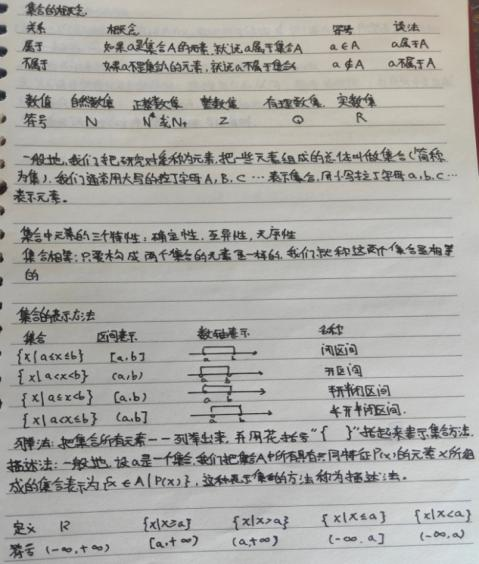 集合的相关概念
关系 相关概念 符号 读法
属于 如果a是集合A的元素,就说a属于集合A a∈A a属于A
不属于 如果a不是集合A的元素,就说a不属于集合A a∉A a不属于A
数值 自然数集 正整数集 整数集 有理数集 实数集
符号 N N*或N+ Z Q R
一般地,我们把研究对象称为元素,把一些元素组成的总体叫做集合(简称
为集),我们通常用大写的拉丁字母A,B,C…表示集合,用小写拉丁字母a,b,c…
表示元素。
集合中元素的三个特性:确定性,互异性,无序性
集合相等:只要构成两个集合的元素是一样的,我们就称这两个集合是相等
的
集合的表示方法
集合 区间表示 数轴表示 名称
{x|a≤x≤b} [a,b] a b 闭区间
{x|a<x<b} (a,b) a b 开区间
{x|a≤x<b} [a,b) a b 半闭区间
{x|a<x≤b} (a,b] a b 半开半闭区间.
列举法:把集合所有元素一一列举出来,并用花括号“{ }”括起来表示集合方法.
描述法:一般地,设a是一个集合,我们把集合A中所有具有共同特征P(x)的元素x所组
成的集合表示为{x∈A|P(x)},这种表示集合的方法称为描述法。
定义 R {x|x≥a} {x|x>a} {x|x≤a} {x|x<a}
符号 (-∞,+∞) [a,+∞) (a,+∞) (-∞,a] (-∞,a)